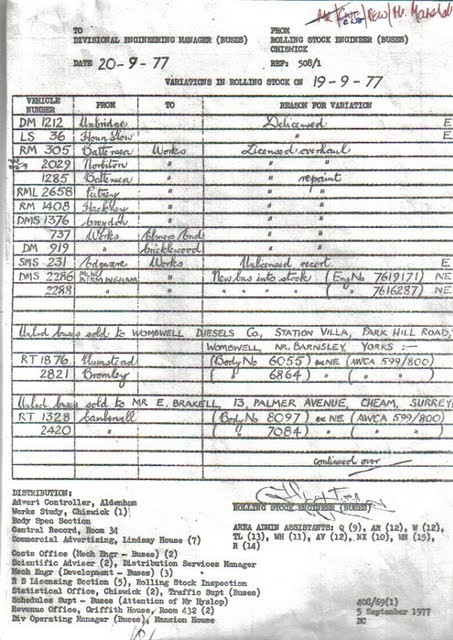 Mr / New / Mr. Marshall
TO FROM
DIVISIONAL ENGINEERING MANAGER (BUSES) ROLLING STOCK ENGINEER (BUSES)
CHISWICK
DATE 20-9-77 REF: 508/1
VARIATIONS IN ROLLING STOCK ON 19-9-77
VEHICLE NUMBER FROM TO REASON FOR VARIATION
DM 1212 Uxbridge Delicensed E
LS 36 Hounslow " E
RM 305 Battersea Works Licensed overhaul
2029 Norbiton " " "
1285 Battersea " " repaint
RML 2658 Putney " " "
RM 1408 Hackney " " "
DMS 1376 Croydon " " "
737 Works Elmers End
DM 919 " Cricklewood
SMS 231 Edgware Works Unlicensed recert E
DMS 2286 BIRMINGHAM " New bus into stock (Eng No 7619171) NE
2288 " " " " " ( " 7616287) NE
Unlsd buses sold to WOMBWELL DIESELS Co, STATION VILLA, PARK HILL ROAD,
WOMBWELL, NR. BARNSLEY, YORKS :—
RT 1876 Plumstead (Body No 6055) ex NE (AWCA 599/800)
2821 Bromley ( " 6864) " ( " " )
Unlsd buses sold to MR E. BRAKELL, 13, PALMER AVENUE, CHEAM, SURREY
RT 1328 Camberwell (Body No 8097) ex NE (AWCA 599/800)
2420 " ( " 7084) " ( " " )
continued over
DISTRIBUTION:
Advert Controller, Aldenham
Works Study, Chiswick (1)
Body Spec Section
Central Record, Room 34
Commercial Advertising, Lindsay House (7)
ROLLING STOCK ENGINEER (BUSES)
AREA ADMIN ASSISTANTS: Q (9), AR (12), W (12),
TL (13), WH (11), AV (12), NX (10), WN (15),
R (14)
Costs Office (Mech Engr - Buses) (2)
Scientific Adviser (2), Distribution Services Manager
Mech Engr (Development - Buses) (3)
R S Licensing Section (5), Rolling Stock Inspection
Statistical Office, Chiswick (2), Traffic Supt (Buses)
Schedules Supt - Buses (Attention of Mr Hyslop)
Revenue Office, Griffith House, Room 432 (2)
Div Operating Manager (Buses), Mansion House
408/69(1)
5 September 1977
DC